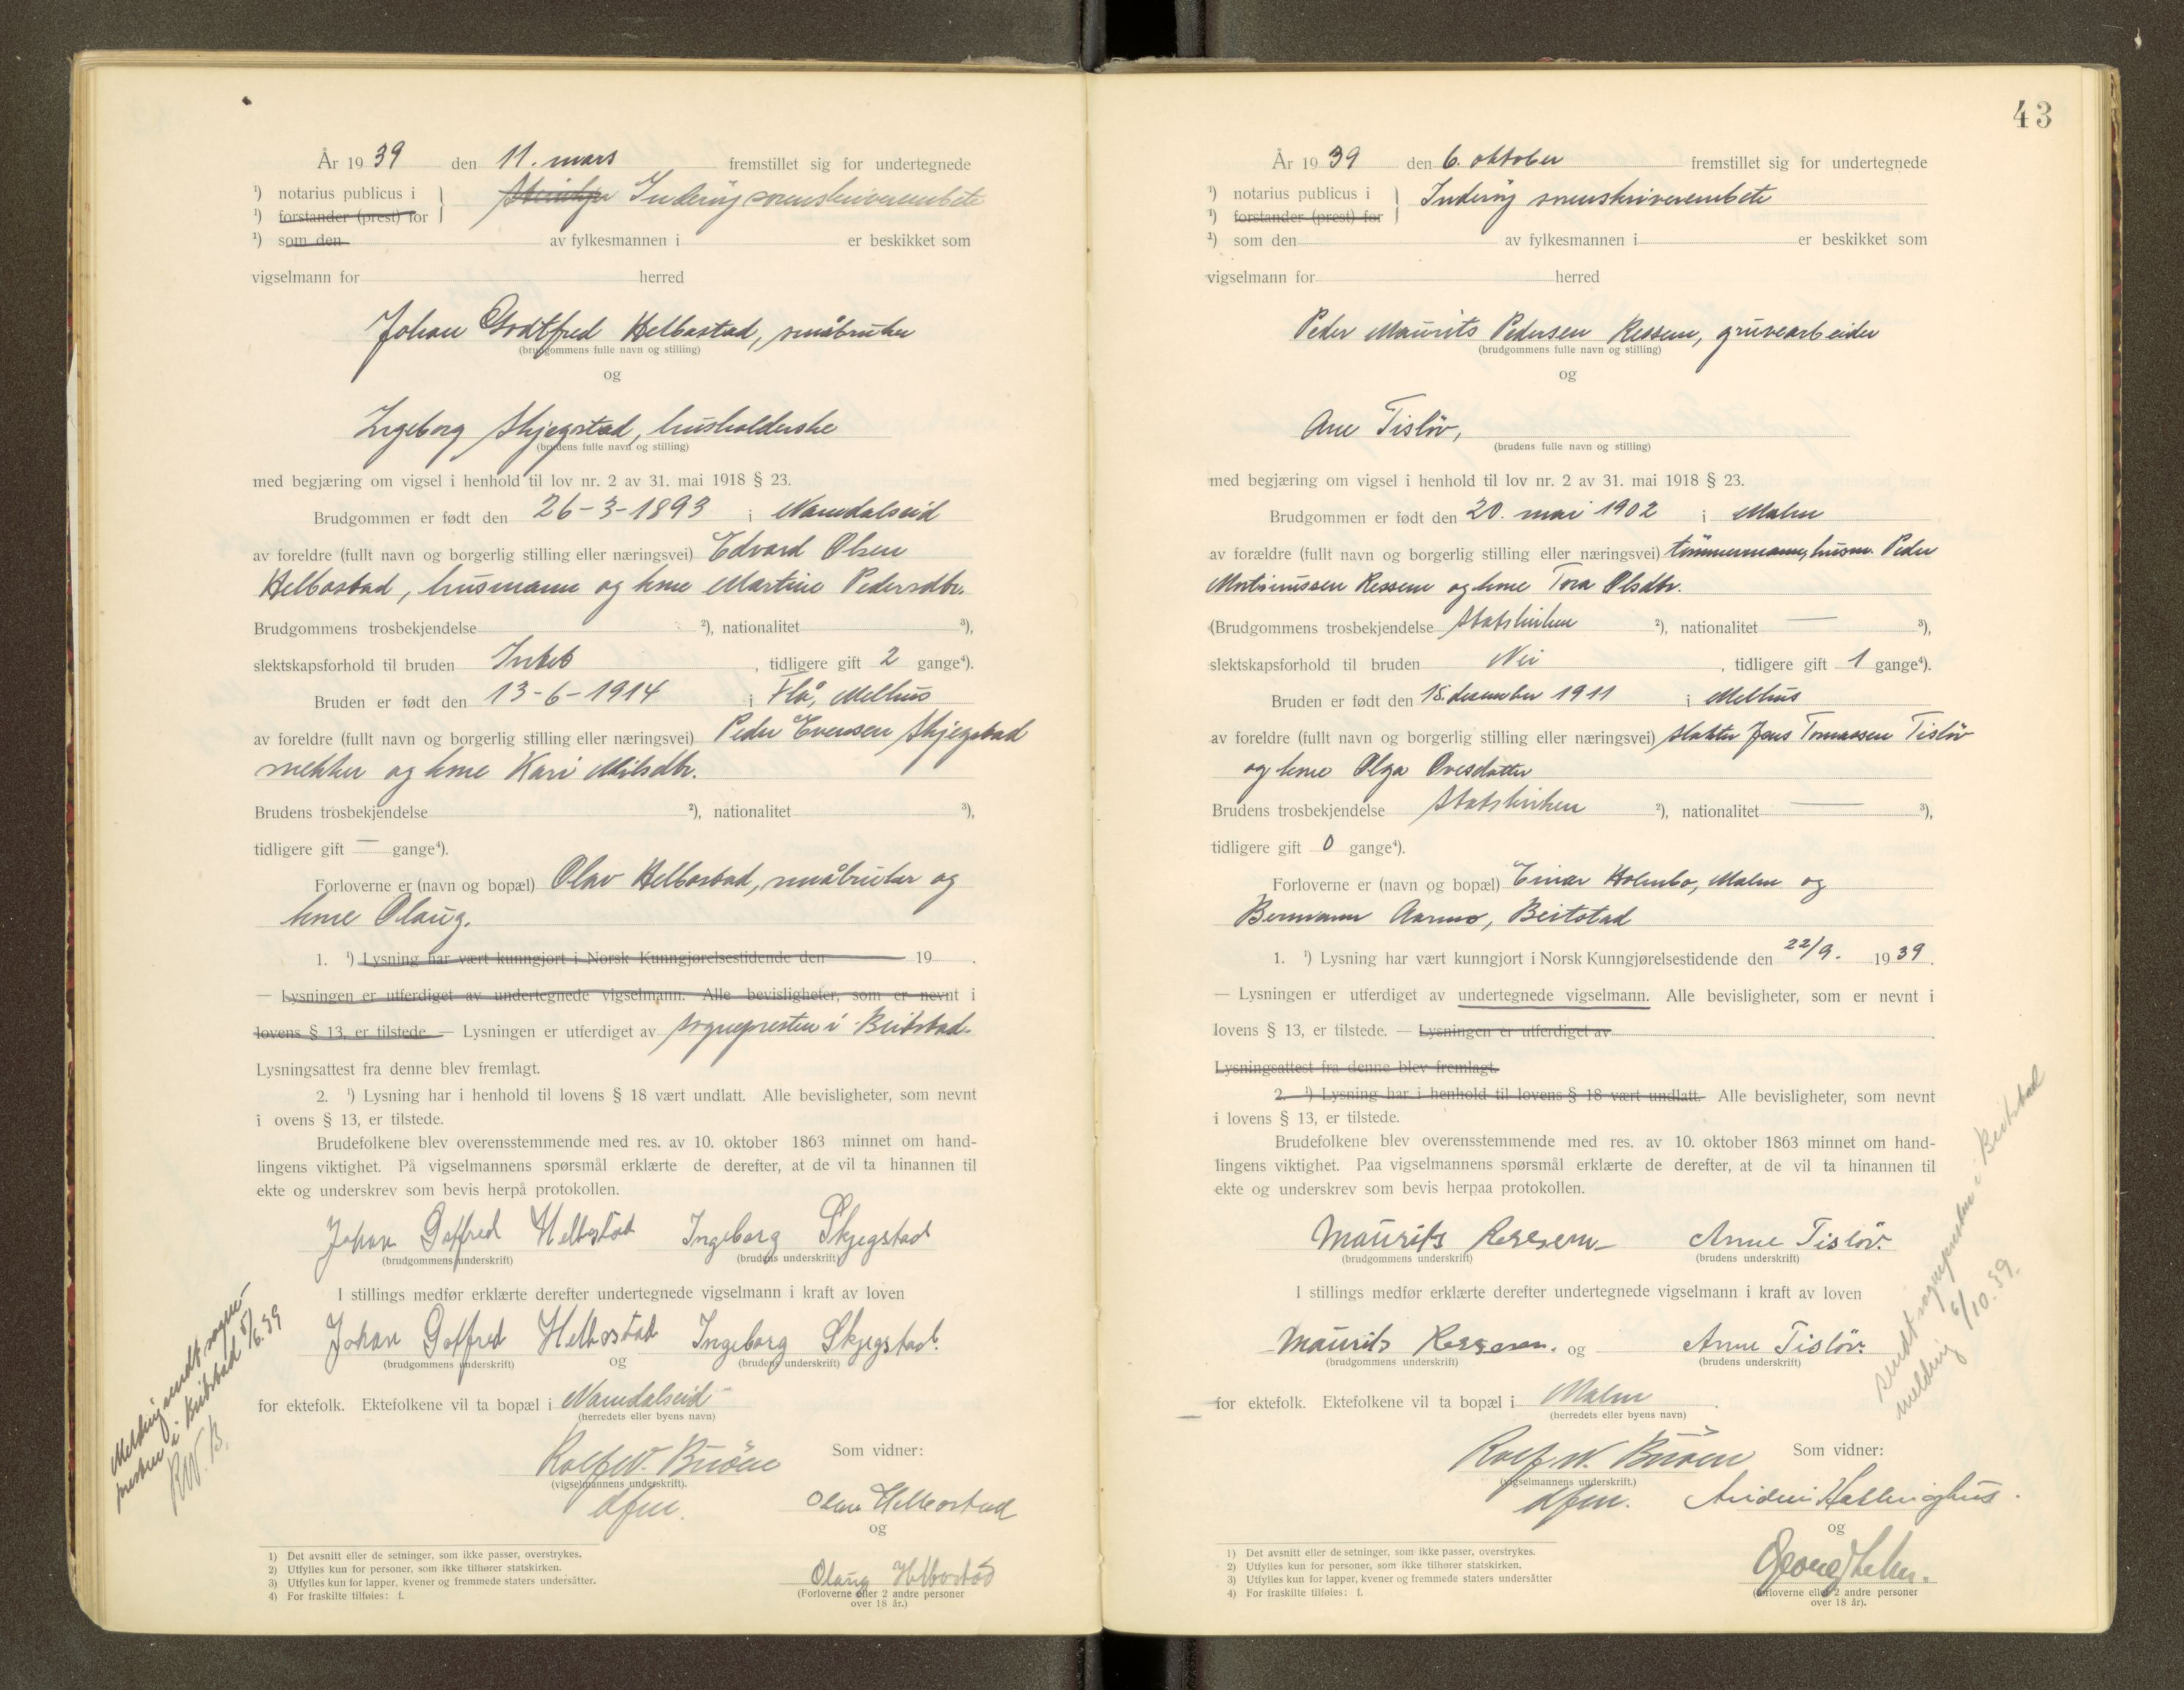 År 1939 den 11. mars fremstillet sig for undertegnede
¹) notarius publicus i
¹) forstander (prest) for
Steinkjer Inderøy sorenskriverembete
¹) som den av fylkesmannen i er beskikket som
vigselmann for herred
Johan Godtfred Helbostad, småbruker
(brudgommens fulle navn og stilling)
og
Ingeborg Skjegstad, husholderske
(brudens fulle navn og stilling)
med begjæring om vigsel i henhold til lov nr. 2 av 31. mai 1918 § 23.
Brudgommen er født den 26-3-1893 i Namdalseid
av foreldre (fullt navn og borgerlig stilling eller næringsvei) Edvard Olsen
Helbostad, husmann og kone Martine Pedersdtr.
Brudgommens trosbekjendelse ²), nationalitet ³),
slektskapsforhold til bruden Intet, tidligere gift 2 gange⁴).
Bruden er født den 13-6-1914 i Flå, Melhus
av foreldre (fullt navn og borgerlig stilling eller næringsvei) Peder Evensen Skjegstad
snekker og kone Kari Nilsdtr.
Brudens trosbekjendelse ²), nationalitet ³),
tidligere gift — gange⁴).
Forloverne er (navn og bopæl) Olav Helbostad, småbruker og
kone Olaug.
1. ¹) Lysning har vært kunngjort i Norsk Kunngjørelsestidende den 19 .
— Lysningen er utferdiget av undertegnede vigselmann. Alle bevisligheter, som er nevnt i
lovens § 13, er tilstede. — Lysningen er utferdiget av sognepresten i Beitstad.
Lysningsattest fra denne blev fremlagt.
2. ¹) Lysning har i henhold til lovens § 18 vært undlatt. Alle bevisligheter, som nevnt
i ovens § 13, er tilstede.
Brudefolkene blev overensstemmende med res. av 10. oktober 1863 minnet om hand-
lingens viktighet. På vigselmannens spørsmål erklærte de derefter, at de vil ta hinannen til
ekte og underskrev som bevis herpå protokollen.
Johan Gotfred Helbostad Ingeborg Skjegstad
(brudgommens underskrift) (brudens underskrift)
I stillings medfør erklærte derefter undertegnede vigselmann i kraft av loven
Johan Gotfred Helbostad Ingeborg Skjegstad.
(brudgommens underskrift) og (brudens underskrift)
for ektefolk. Ektefolkene vil ta bopæl i Namdalseid
(herredets eller byens navn)
Rolf W. Buöen Som vidner:
(vigselmannens underskrift).
dfm.
Olav Helbostad
og
Olaug Helbostad
(Forloverne eller 2 andre personer
over 18 år.)
1) Det avsnitt eller de setninger, som ikke passer, overstrykes.
2) Utfylles kun for personer, som ikke tilhører statskirken.
3) Utfylles kun for lapper, kvener og fremmede staters undersåtter.
4) For fraskilte tilføies: f.
Melding sendt sogne-
presten i Beitstad 5/6.39
RW.B.
43
År 1939 den 6. oktober fremstillet sig for undertegnede
¹) notarius publicus i
¹) forstander (prest) for
Inderøy sorenskriverembete
¹) som den av fylkesmannen i er beskikket som
vigselmann for herred
Peder Maurits Pedersen Ressem, gruvearbeider
(brudgommens fulle navn og stilling)
og
Ane Tisløv,
(brudens fulle navn og stilling)
med begjæring om vigsel i henhold til lov nr. 2 av 31. mai 1918 § 23.
Brudgommen er født den 20. mai 1902 i Malm
av forældre (fullt navn og borgerlig stilling eller næringsvei) tömmermann, husm. Peder
Martinussen Ressem og kone Tora Olsdtr.
(Brudgommens trosbekjendelse Statskirken ²), nationalitet — ³),
slektskapsforhold til bruden Nei, tidligere gift 1 gange⁴).
Bruden er født den 18. desember 1911 i Melhus
av foreldre (fullt navn og borgerlig stilling eller næringsvei) slakter Jens Tomassen Tisløv
og kone Olga Ovesdatter
Brudens trosbekjendelse Statskirken ²), nationalitet — ³),
tidligere gift 0 gange⁴).
Forloverne er (navn og bopæl) Einar Holmbo, Malm og
Bermann Aarmo, Beitstad
1. ¹) Lysning har vært kunngjort i Norsk Kunngjørelsestidende den 22/9. 1939.
— Lysningen er utferdiget av undertegnede vigselmann. Alle bevisligheter, som er nevnt i
lovens § 13, er tilstede. — Lysningen er utferdiget av .
Lysningsattest fra denne blev fremlagt.
2. ¹) Lysning har i henhold til lovens § 18 vært undlatt. Alle bevisligheter, som nevnt
i lovens § 13, er tilstede.
Brudefolkene blev overensstemmende med res. av 10. oktober 1863 minnet om hand-
lingens viktighet. Paa vigselmannens spørsmål erklærte de derefter, at de vil ta hinannen til
ekte og underskrev som bevis herpaa protokollen.
Maurits Ressem Anne Tisløv.
(brudgommens underskrift) (brudens underskrift)
I stillings medfør erklærte derefter undertegnede vigselmann i kraft av loven
Maurits Ressem. og Anne Tisløv.
(brudgommens underskrift) (brudens underskrift)
for ektefolk. Ektefolkene vil ta bopæl i Malm.
(herredets eller byens navn)
Rolf W. Buöen Som vidner:
(vigselmannens underskrift.)
dfm.
og
(Forloverne eller 2 andre personer
over 18 år).
1) Det avsnitt eller de setninger, som ikke passer, overstrykes.
2) Utfylles kun for personer, som ikke tilhører statskirken.
3) Utfylles kun for lapper, kvener og fremmede staters undersåtter
4) For fraskilte tilføies: f.
Sendt sognepresten i Beitstad
melding 6/10.39.